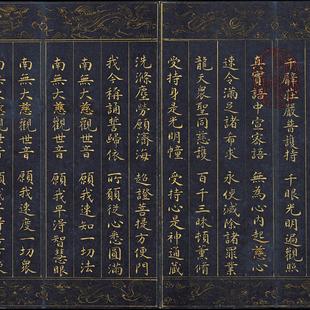 千臂莊嚴普護持 千眼光明遍觀照
真實語中宣密語 無為心內起悲心
速令滿足諸希求 永使滅除諸罪業
龍天衆聖同慈護 百千三昧頓熏修
受持身是光明幢 受持心是神通藏
洗滌塵勞願濟海 超證菩提方便門
我今稱誦誓歸依 所願從心悉圓滿
南無大悲觀世音 願我速知一切法
南無大悲觀世音 願我早得智慧眼
南無大悲觀世音 願我速度一切衆